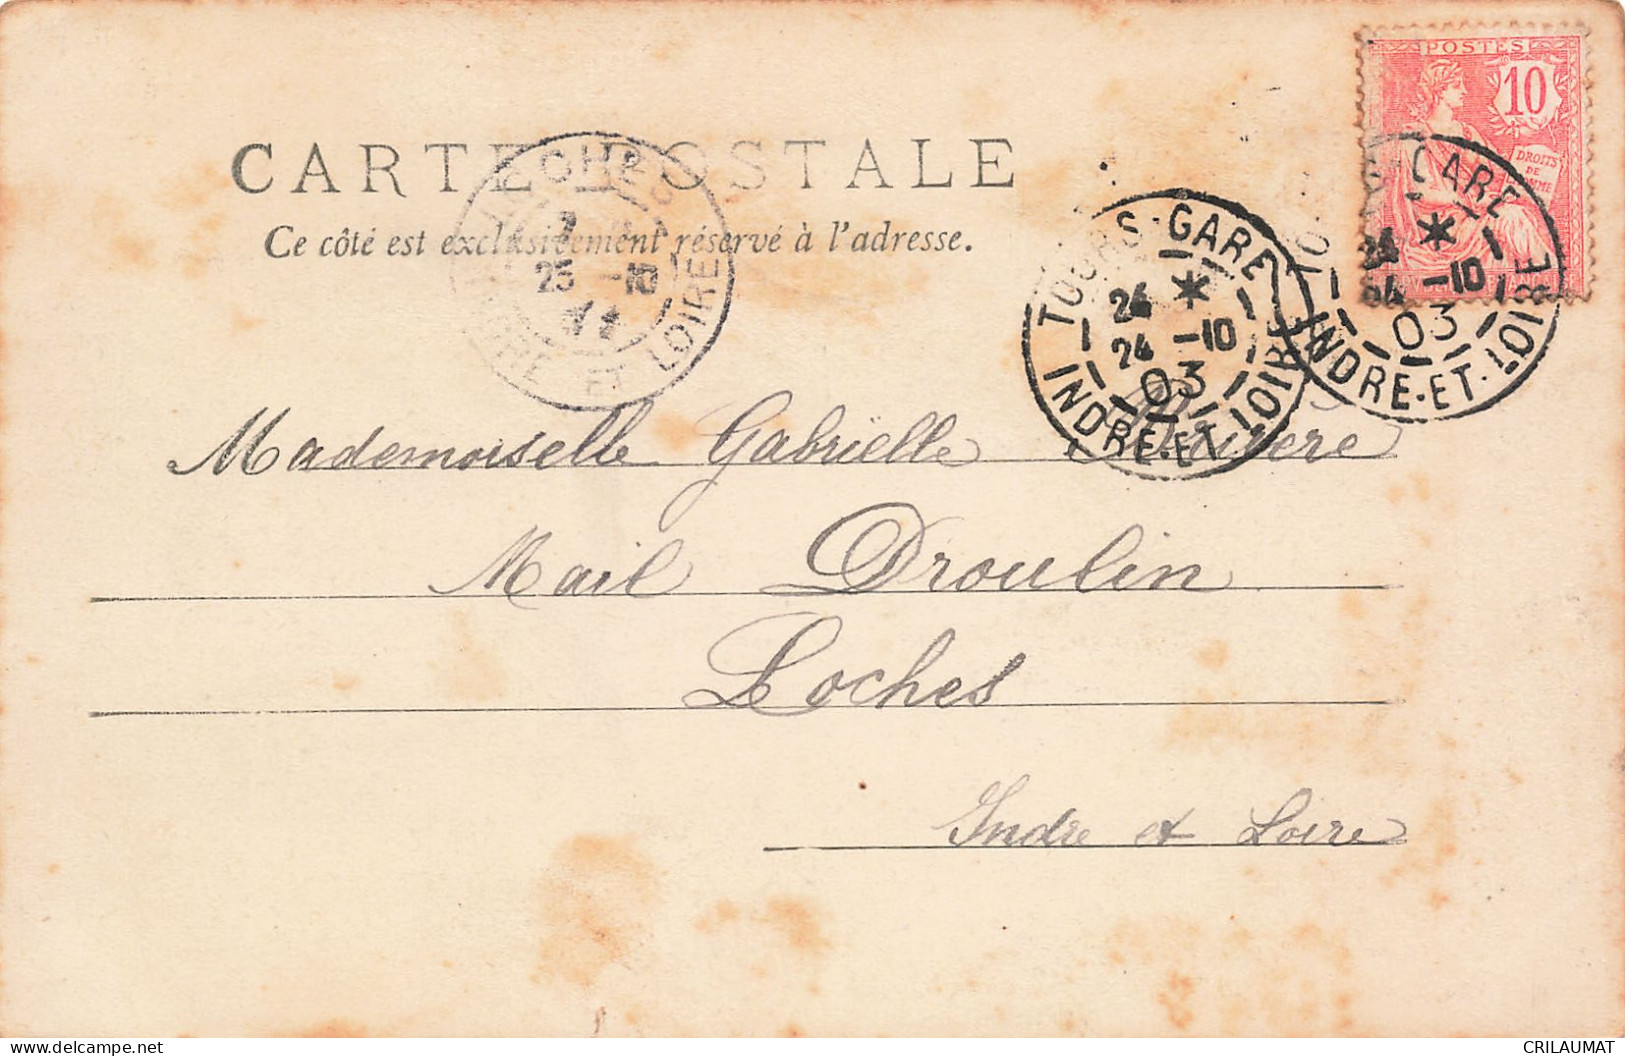 POSTES
10
DROITS
DE
HOMME
CARTE POSTALE
Ce côté est exclusivement réservé à l'adresse.
LOCHES
25 -10
INDRE ET LOIRE
TOURS-GARE
24
24 -10
03
INDRE-ET-LOIRE
GARE
24
-10
03
INDRE-ET-LOIRE
Mademoiselle Gabrielle
Mail Droulin
Loches
Indre et Loire
www.delcampe.net
CRILAUMAT